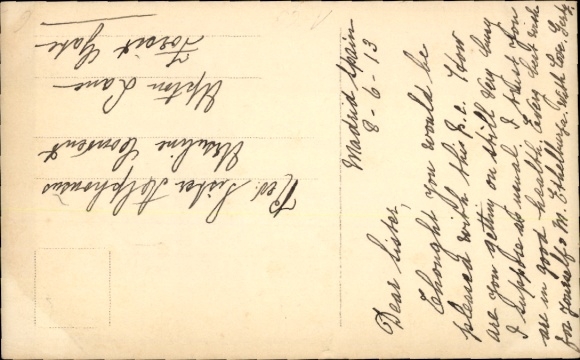 Madrid Spain
8-6-13
Dear Sister,
Thought you would be
pleased with this p.c. How
are you getting on still very busy
I suppose as usual. I trust you
are in good health. Every best wish
for yourself & M. Ethelburga. With Love.
Rev. Sister Alphonsus
Ursuline Convent
Upton Lane
Forest Gate